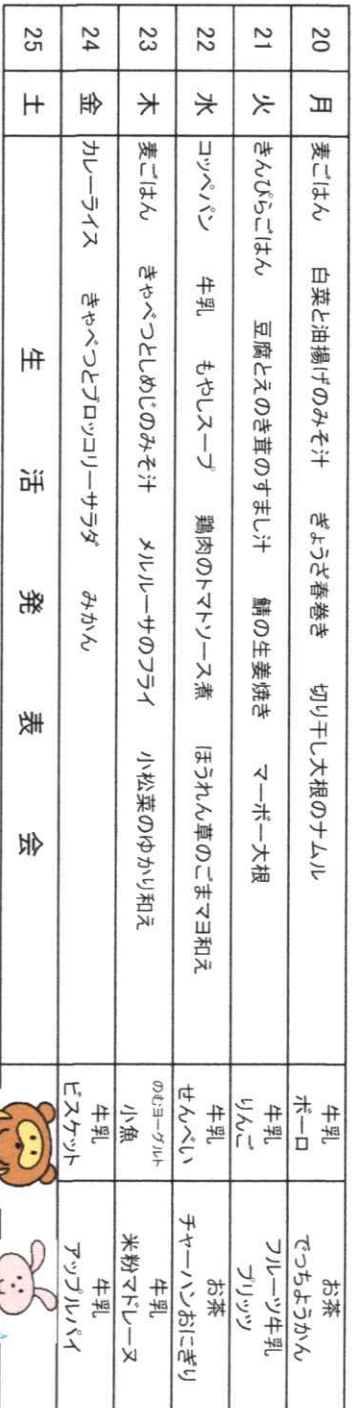 20 月 麦ごはん 白菜と油揚げのみそ汁 ぎょうざ春巻き 切り干し大根のナムル 牛乳 ボーロ お茶 でっちようかん
21 火 きんぴらごはん 豆腐とえのき茸のすまし汁 鯖の生姜焼き マーボー大根 牛乳 りんご フルーツ牛乳 プリッツ
22 水 コッペパン 牛乳 もやしスープ 鶏肉のトマトソース煮 ほうれん草のごまマヨ和え 牛乳 せんべい お茶 チャーハンおにぎり
23 木 麦ごはん きゃべつとしめじのみそ汁 メルルーサのフライ 小松菜のゆかり和え のむヨーグルト 小魚 牛乳 米粉マドレーヌ
24 金 カレーライス きゃべつとブロッコリーサラダ みかん 牛乳 ビスケット 牛乳 アップルパイ
25 土 生活発表会